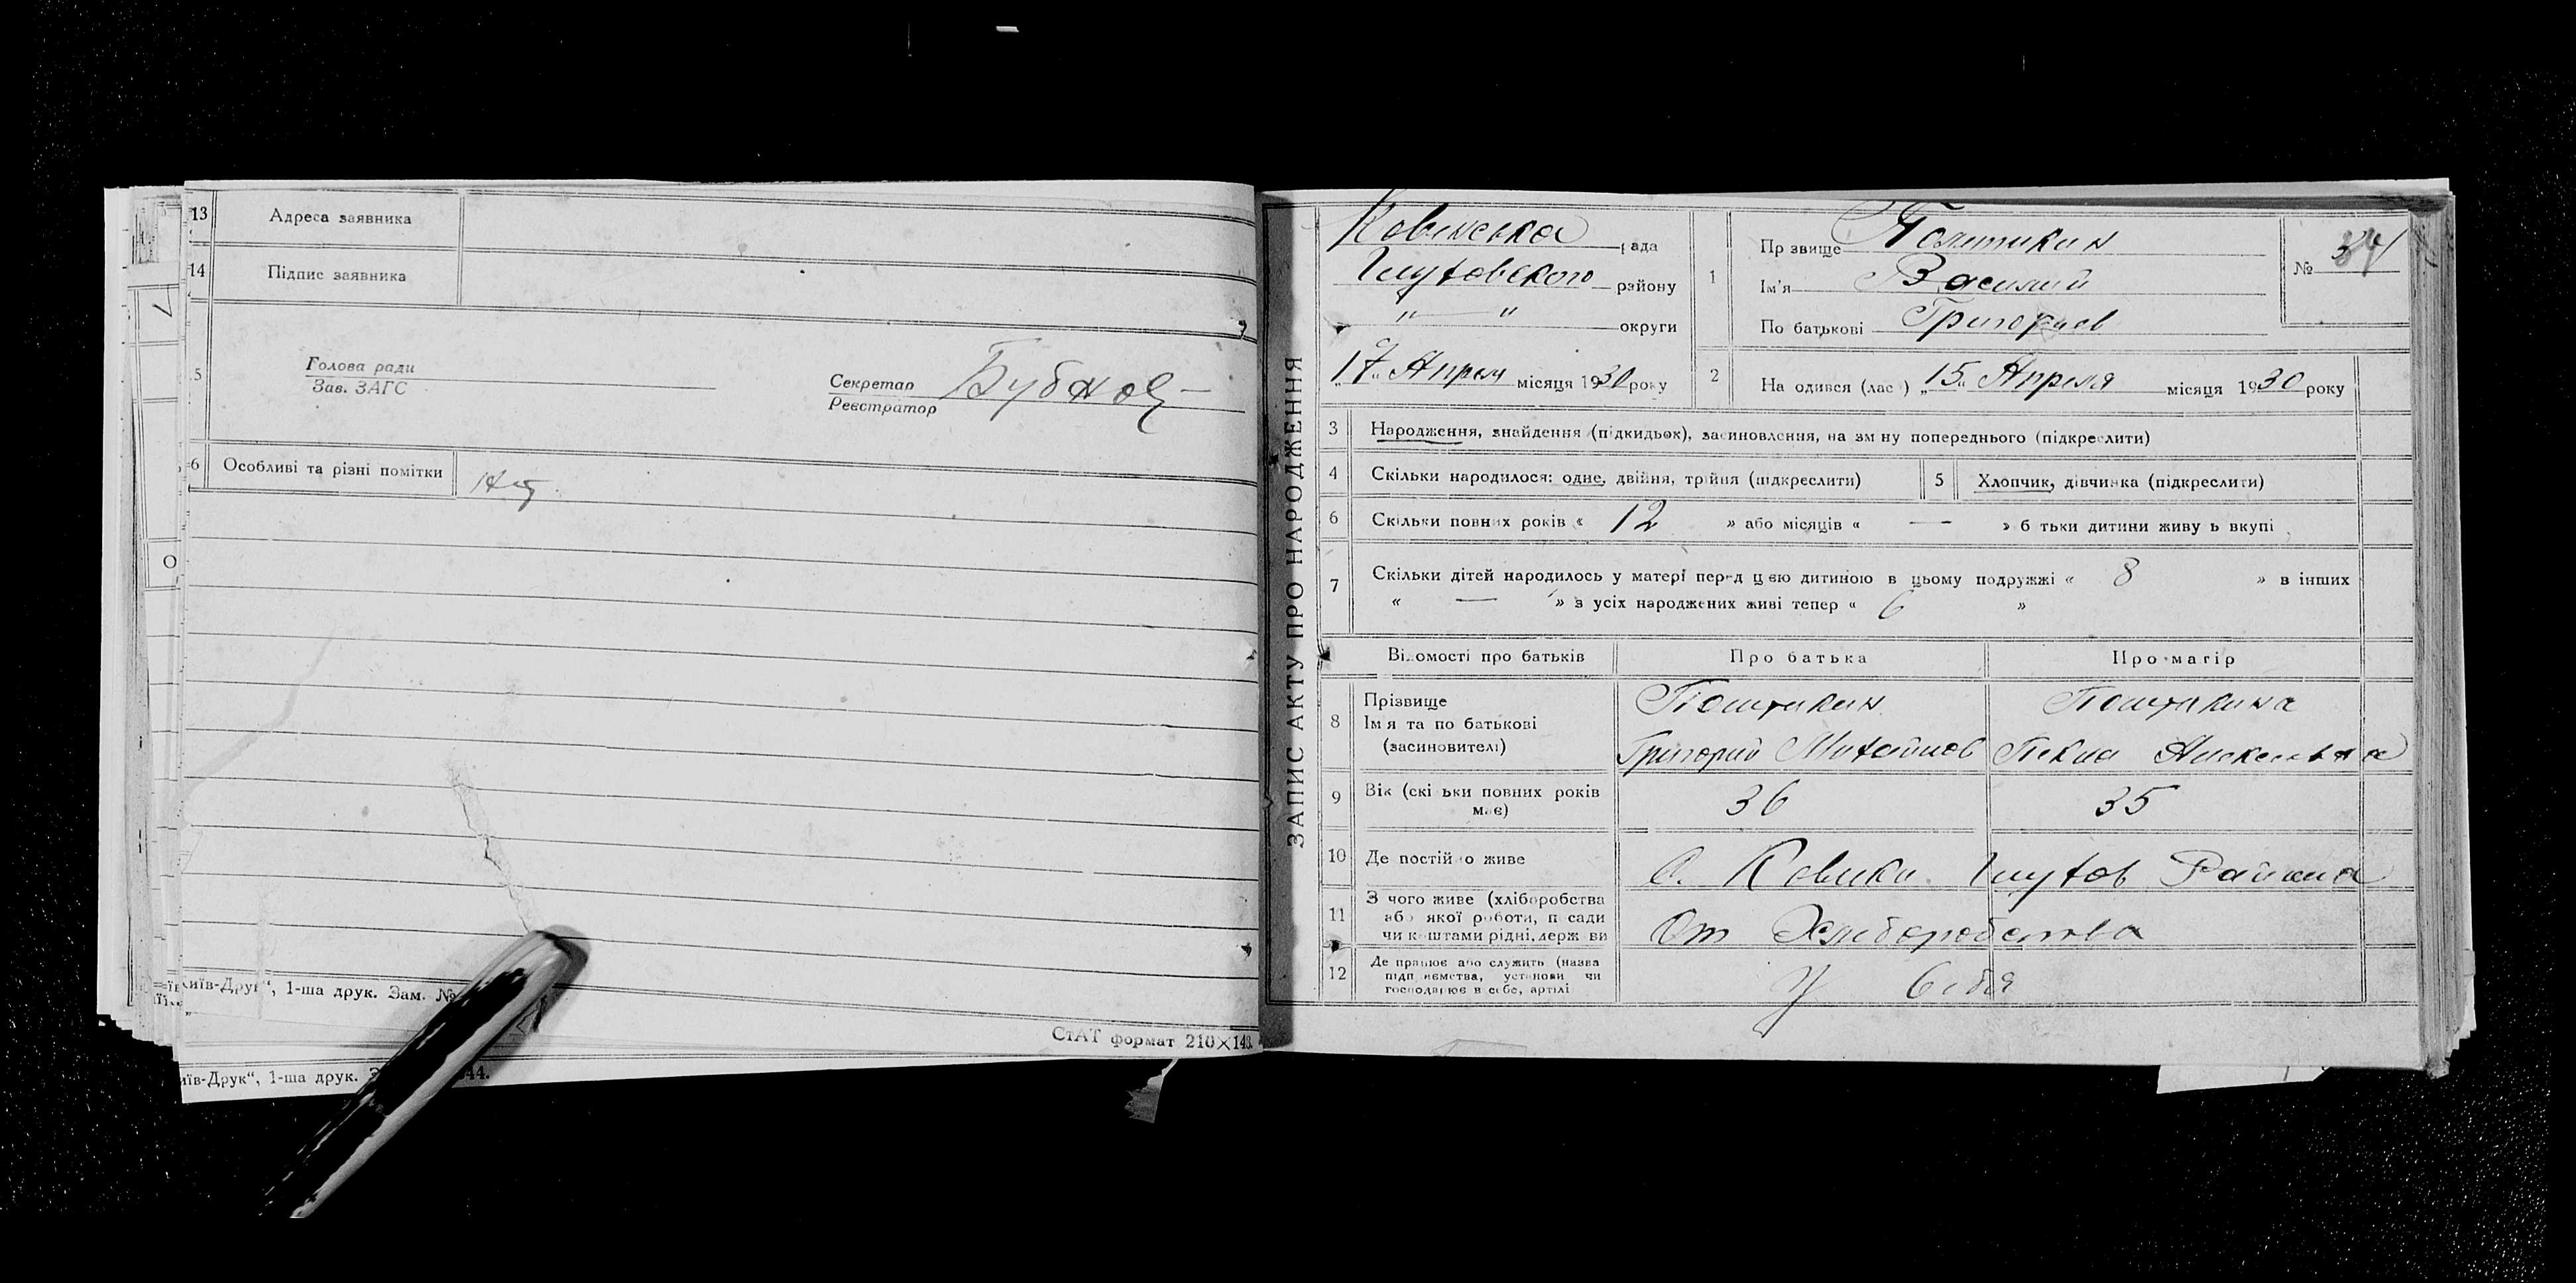 13 Адреса заявника
14 Підпис заявника
5 Голова ради
Зав. ЗАГС
Секретар Бубнов
Реєстратор
6 Особливі та різні помітки Нет
Київ-Друк“, 1-ша друк. Зам. №
СтАТ формат 210×148.
иїв-Друк“, 1-ша друк. З 44.
ЗАПИС АКТУ ПРО НАРОДЖЕННЯ
рада
району
" " округи
„17“ Апреля місяця 1930 року
1 Прізвище
Ім'я Василий
По батькові Григориев
№ 34
2 На одився (лас ) „15“ Апреля місяця 1930 року
3 Народження, знайдення (підкидьок), засиновлення, на зм ну попереднього (підкреслити)
4 Скільки народилося: одне, двійня, трійня (підкреслити)
5 Хлопчик, дівчинка (підкреслити)
6 Скільки повних років « 12 » або місяців « — » б тьки дитини живу ь вкупі
7 Скільки дітей народилось у матері перед цією дитиною в цьому подружжі « 8 » в інших
« — » з усіх народжених живі тепер « 6 »
Відомості про батьків Про батька Про матір
8 Прізвище
Імя та по батькові Григорий Михайлов
(засиновителі)
9 Вік (скі ьки повних років 36 35
має)
10 Де постій о живе с.
11 З чого живе (хліборобства
або якої роботи, п сади От Хлеборобства
чи коштами рідні, держ ви
12 Де працює або служить (назва
підп иємства, установи чи У себя
господарює в себе, артілі